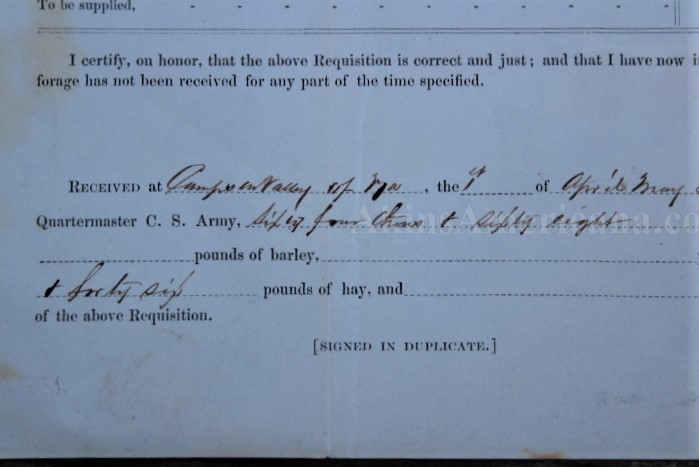 To be supplied, - - - - - - - - -
I certify, on honor, that the above Requisition is correct and just; and that I have now i
forage has not been received for any part of the time specified.
RECEIVED at Camps in Valley of Va, the 1st of April & May
Quartermaster C. S. Army, sixty four thous & sixty eight
pounds of barley,
& forty six pounds of hay, and
of the above Requisition.
[SIGNED IN DUPLICATE.]
AikinsAmericana.co